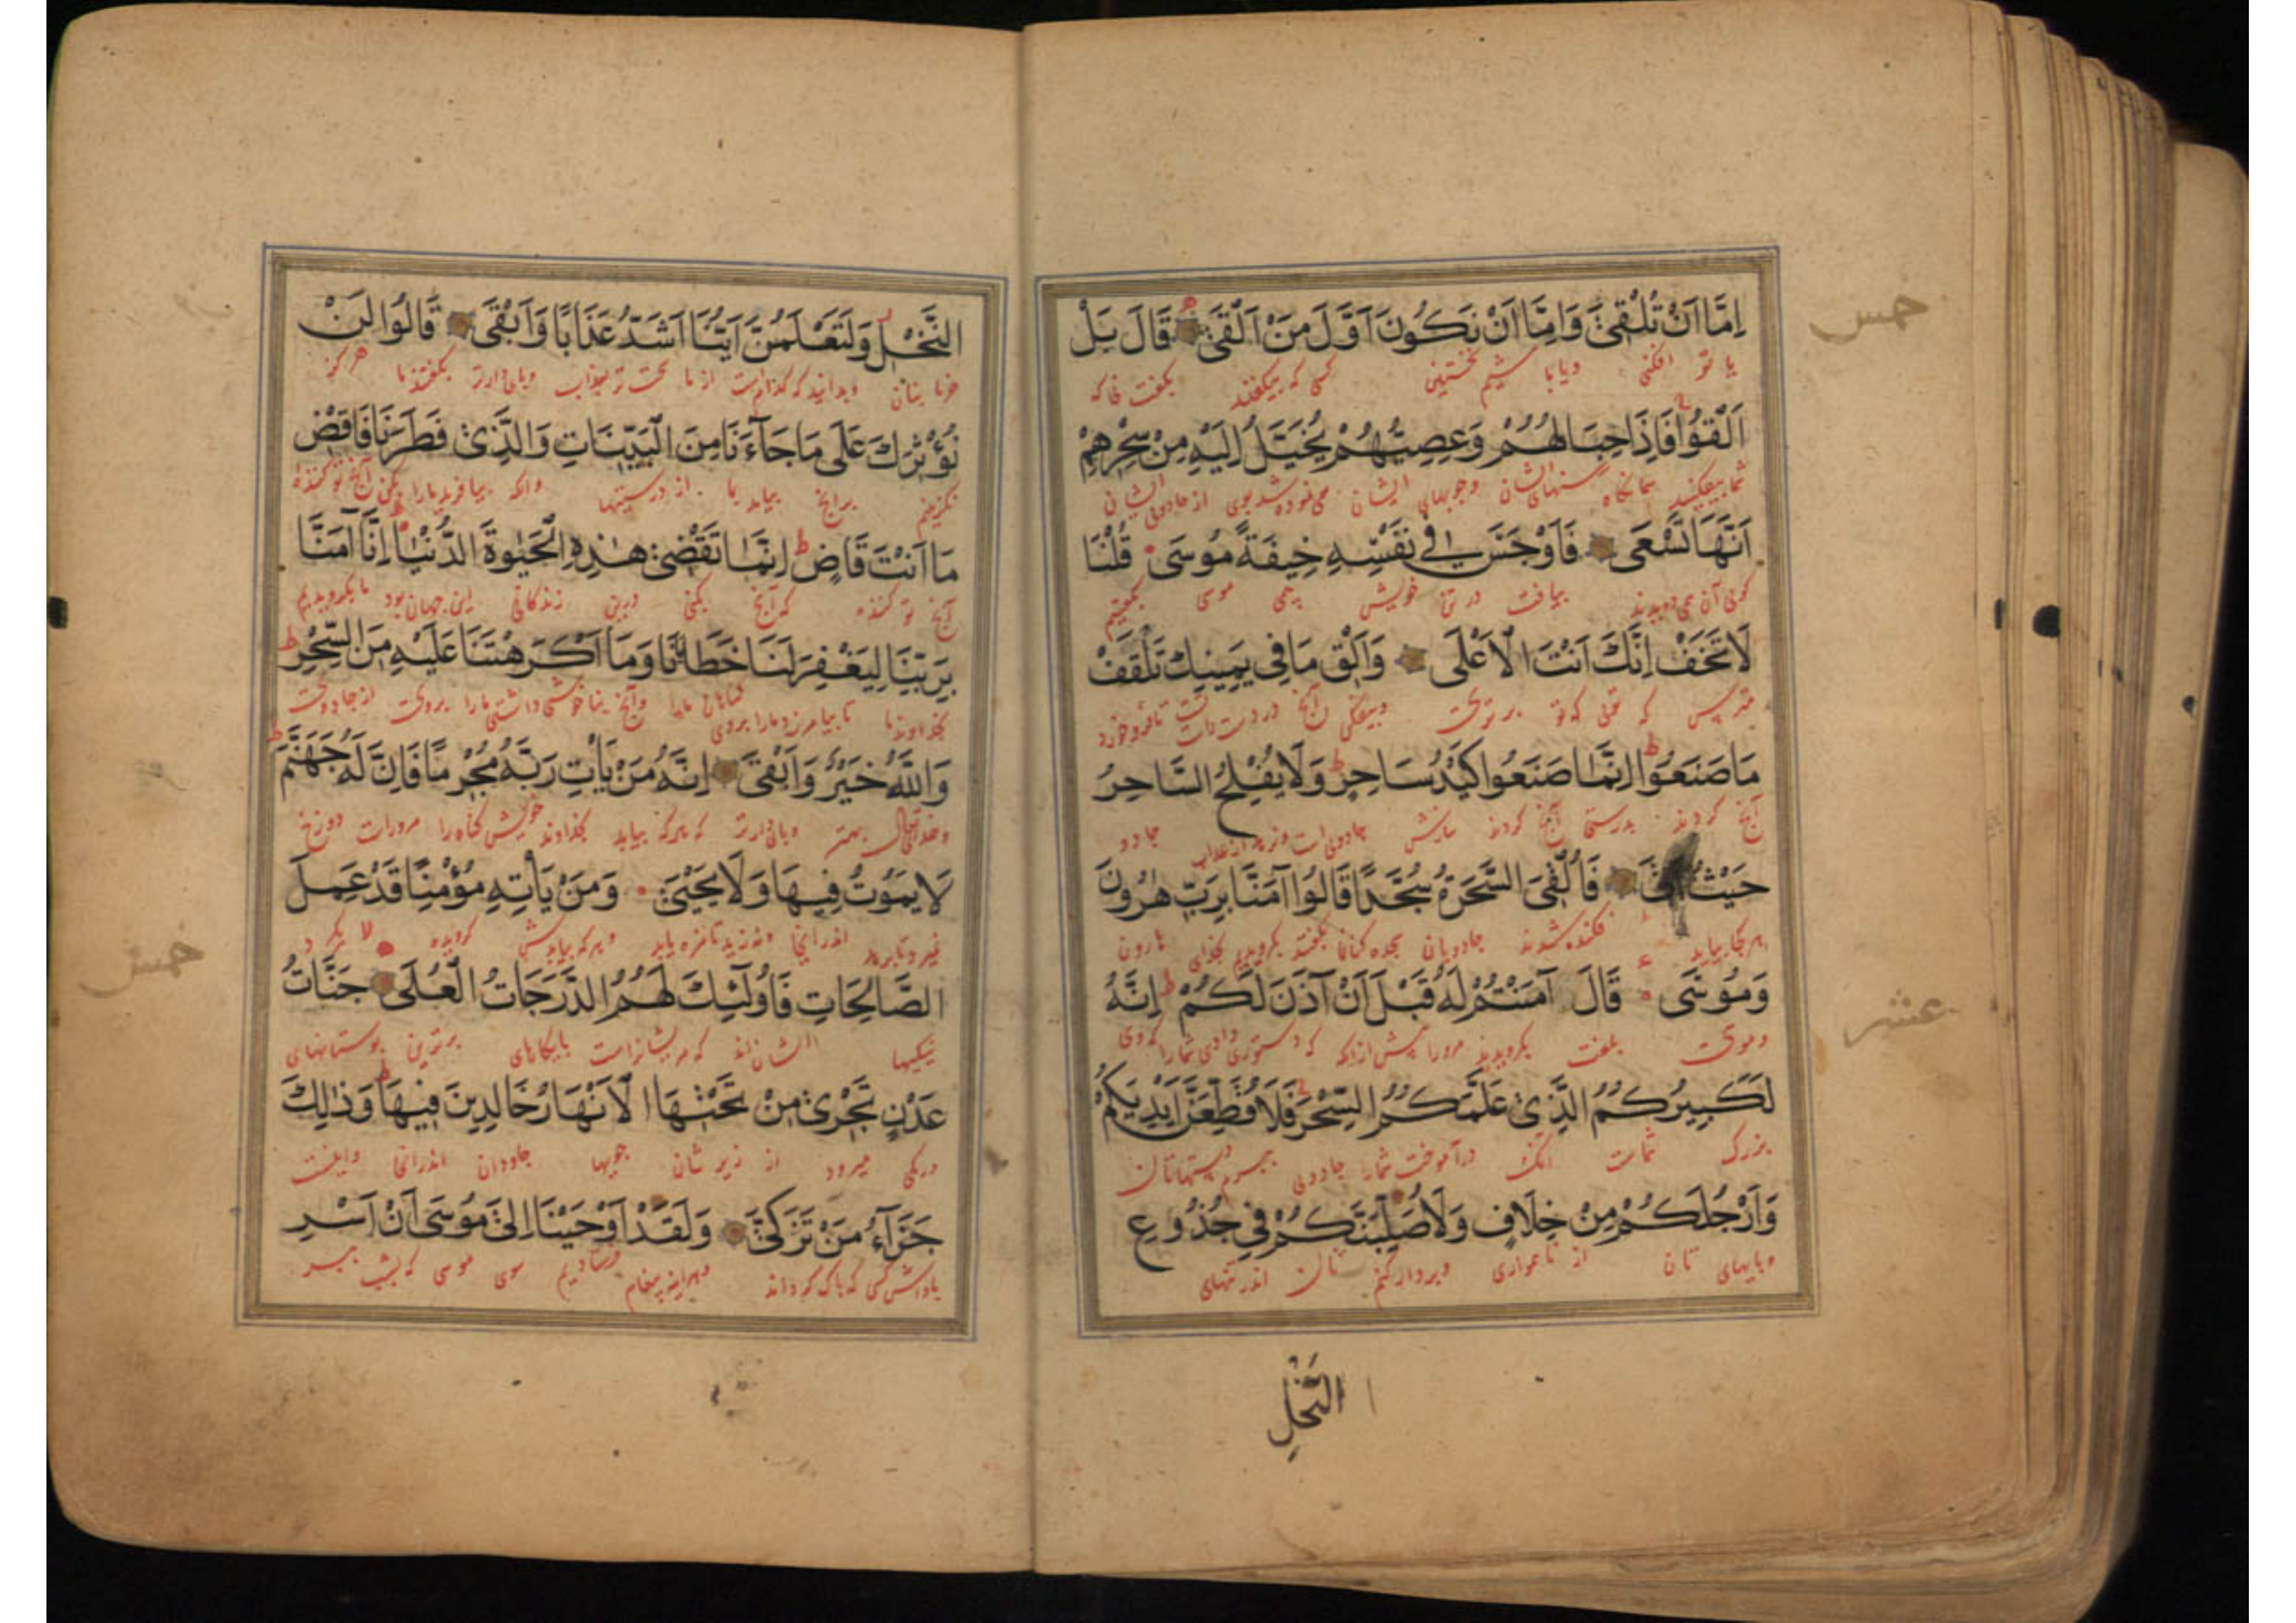 اِمَّا اَنْ تُلْقِىَ وَاِمَّا اَنْ نَكُونَ اَوَّلَ مَنْ اَلْقَىَ قَالَ بَلْ
یا تو افکنی و یا باشیم نخستین کسی که بیفکند بگفت نه که
اَلْقُوْا فَاِذَا حِبَالُهُمْ وَعِصِيُّهُمْ يُخَيَّلُ اِلَيْهِ مِنْ سِحْرِهِمْ
شما بیفکنید ایشان وچوبهای ایشان می نموده شد بوی از جادوئی ایشان
اَنَّهَا تَسْعَى فَاَوْجَسَ فِى نَفْسِهِ خِيفَةً مُوسَى قُلْنَا
گوئی آن می دویدند بیافت در تن خویش بیمی موسی بگفتیم
لَا تَخَفْ اِنَّكَ اَنْتَ الْاَعْلَى وَاَلْقِ مَا فِى يَمِينِكَ تَلْقَفْ
مترس که توئی که تو برتری وبیفکن آنچ در دست راست تا فروخورد
مَا صَنَعُوا اِنَّمَا صَنَعُوا كَيْدُ سَاحِرٍ وَلَا يُفْلِحُ السَّاحِرُ
آنچ کردند بدرستی آنچ کردند جادوئی است جادو
حَيْثُ فَاُلْقِىَ السَّحَرَةُ سُجَّدًا قَالُوا آمَنَّا بِرَبِّ هٰرُونَ
هرکجا بیاید فکنده شدند جادویان سجده کنان بگفتند بگرویدیم بخدای هارون
وَمُوسَى قَالَ آمَنْتُمْ لَهُ قَبْلَ اَنْ آذَنَ لَكُمْ اِنَّهُ
وموسی بگفت بگرویدید مرورا پیش ازانکه که دستوری دادمی شما را که وی
لَكَبِيرُكُمُ الَّذِى عَلَّمَكُمُ السِّحْرَ فَلَاُقَطِّعَنَّ اَيْدِيَكُمْ
بزرگ شماست آنک درآموخت شما را جادوئی ببرم دستهاتان
وَاَرْجُلَكُمْ مِنْ خِلَافٍ وَلَاُصَلِّبَنَّكُمْ فِى جُذُوعِ
وپایهای تان از وبردار کنم تان اندر تنهای
النَّخْلِ
خمس
عشر
النَّخْلِ وَلَتَعْلَمُنَّ اَيُّنَا اَشَدُّ عَذَابًا وَاَبْقَى قَالُوا لَنْ
خرما بنان وبدانید که کدام است از ما سخت تر بعذاب بگفتند ما هرگز
نُؤْثِرَكَ عَلَى مَا جَاءَنَا مِنَ الْبَيِّنَاتِ وَالَّذِى فَطَرَنَا فَاقْضِ
نگزینیم برانچ بیامد بما از درستیها وانکه بیافرید ما را بکن آنچ تو کننده
مَا اَنْتَ قَاضٍ اِنَّمَا تَقْضِى هٰذِهِ الْحَيٰوةَ الدُّنْيَا اِنَّا آمَنَّا
آنچ تو کننده که آنچ کنی درین زندگانی این جهان بود ما بگرویدیم
بِرَبِّنَا لِيَغْفِرَ لَنَا خَطَايَانَا وَمَا اَكْرَهْتَنَا عَلَيْهِ مِنَ السِّحْرِ
بخداوند ما تا بیامرزد ما را گناهان ما را وآنچ بناخوشی داشتی ما را بروی از جادوئی
وَاللّٰهُ خَيْرٌ وَاَبْقَى اِنَّهُ مَنْ يَأْتِ رَبَّهُ مُجْرِمًا فَاِنَّ لَهُ جَهَنَّمَ
وخدای تعالی بهتر که هرکه بیاید بخداوند خویش مروراست دوزخ
لَا يَمُوتُ فِيهَا وَلَا يَحْيَىٰ وَمَنْ يَأْتِهِ مُؤْمِنًا قَدْ عَمِلَ
اندر آنجا ونه زید وهرکه بیاید گرویده
الصَّالِحَاتِ فَاُولٰئِكَ لَهُمُ الدَّرَجَاتُ الْعُلَى جَنَّاتُ
نیکیها ایشان اند که مریشانراست پایگاهای برترین بوستانهای
عَدْنٍ تَجْرِى مِنْ تَحْتِهَا الْاَنْهَارُ خَالِدِينَ فِيهَا وَذٰلِكَ
میرود از زیر شان جویها جاودان اندرانجا واینست
جَزَاءُ مَنْ تَزَكَّىٰ وَلَقَدْ اَوْحَيْنَا اِلَىٰ مُوسَى اَنْ اَسْرِ
پاداش کسی که پاک پیغام سوی موسی که بشب ببر
خمس